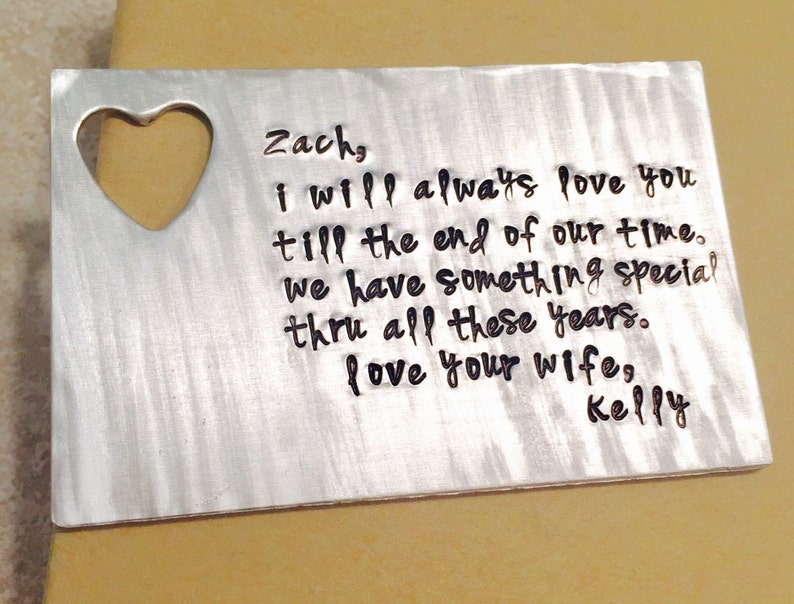 Zach,
i will always love you
till the end of our time.
we have something special
thru all these years.
love your wife,
Kelly